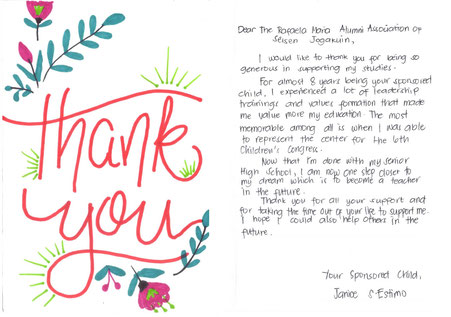 thank
you
Dear The Rafaela Maria Alumni Association of
Seisen Jogakuin,
I would like to thank you for being so
generous in supporting my studies.
For almost 8 years being your sponsored
child, I experienced a lot of leadership
trainings and values formation that made
me value more my education. The most
memorable among all is when I was able
to represent the center for the 6th
Children's Congress.
Now that I'm done with my Senior
High School, I am now one step closer to
my dream which is to become a teacher
in the future.
Thank you for all your support and
for taking the time out of your life to support me.
I hope I could also help others in the
future.
Your Sponsored Child,
Janice Estimo